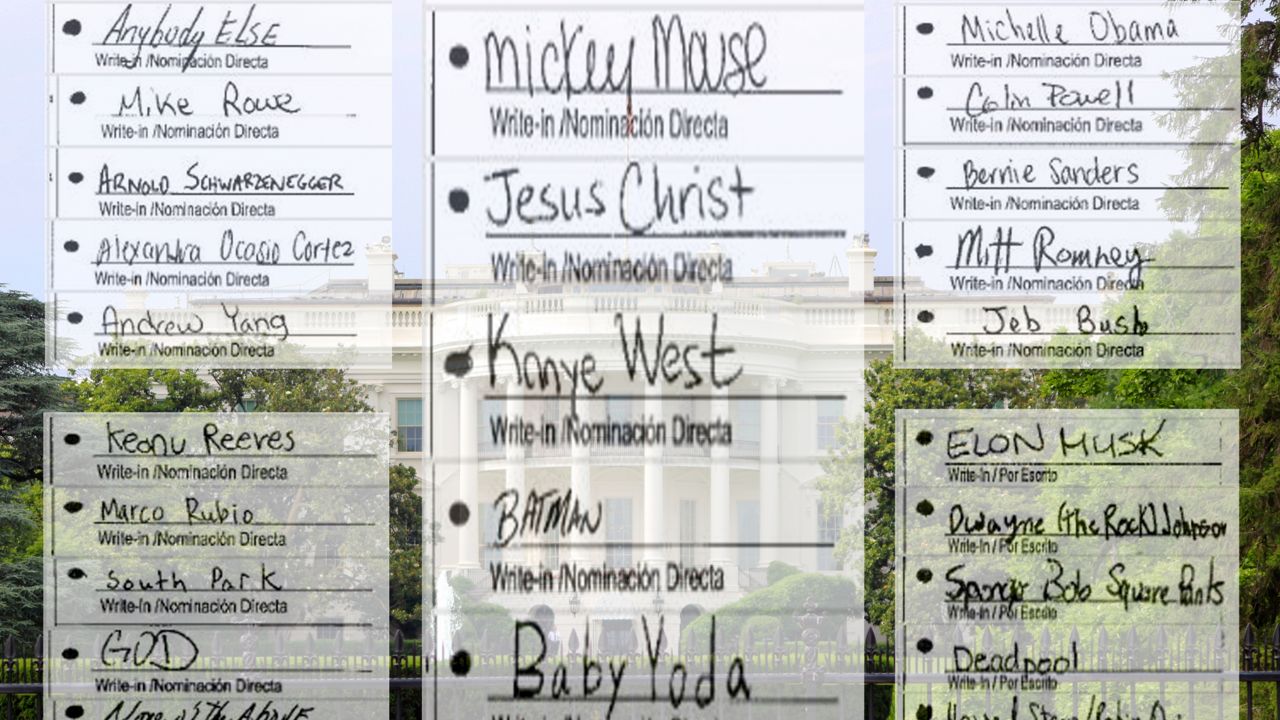 Anybody ELSE
Write-in /Nominación Directa
Mike Rowe
Write-in /Nominación Directa
ARNOLD SCHWARZENEGGER
Write-in /Nominación Directa
Alexandra Ocasio Cortez
Write-in /Nominación Directa
Andrew Yang
Write-in /Nominación Directa
Keanu Reeves
Write-in /Nominación Directa
Marco Rubio
Write-in /Nominación Directa
South Park
Write-in /Nominación Directa
GOD
Write-in /Nominación Directa
None of the Above
mickey Mouse
Write-in /Nominación Directa
Jesus Christ
Write-in /Nominación Directa
Kanye West
Write-in /Nominación Directa
BATMAN
Write-in /Nominación Directa
Baby Yoda
Michelle Obama
Write-in /Nominación Directa
Colin Powell
Write-in /Nominación Directa
Bernie Sanders
Write-in /Nominación Directa
Mitt Romney
Write-in /Nominación Directa
Jeb Bush
Write-in /Nominación Directa
ELON MUSK
Write-In / Por Escrito
Dwayne (the Rock) Johnson
Write-In / Por Escrito
Sponge Bob Square Pants
Write-In / Por Escrito
Deadpool
Write-In / Por Escrito
Howard Stern/